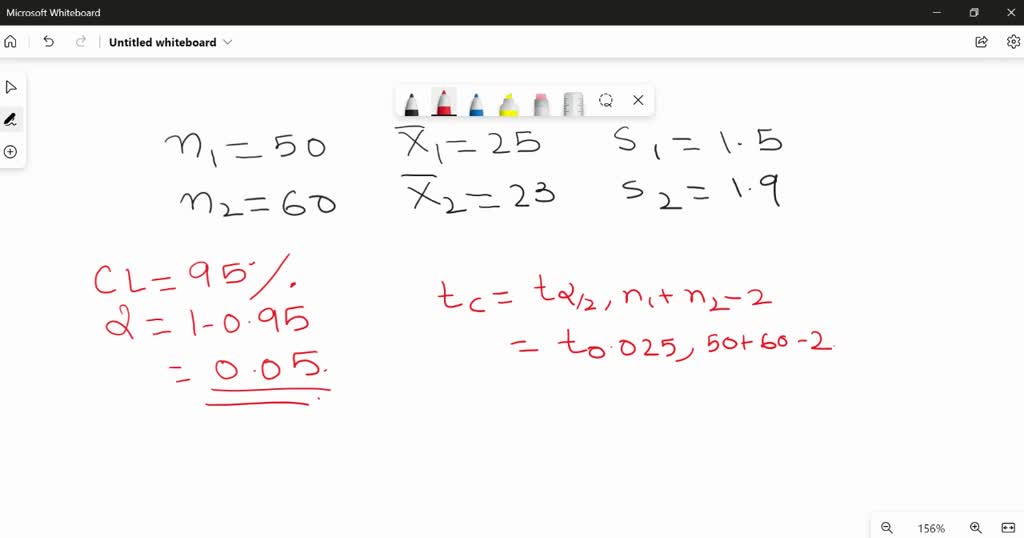 Microsoft Whiteboard
Untitled whiteboard
n₁ = 50 X̄₁ = 25 S₁ = 1.5
n₂ = 60 X̄₂ = 23 S₂ = 1.9
CL = 95%.
α = 1 - 0.95
= 0.05.
t_c = t_α/2, n₁ + n₂ - 2
= t_0.025, 50 + 60 - 2
156%